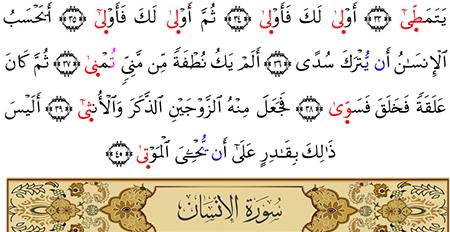 يَتَمَطّىٰٓ ۝٣٣ أَوْلىٰ لَكَ فَأَوْلىٰ ۝٣٤ ثُمَّ أَوْلىٰ لَكَ فَأَوْلىٰٓ ۝٣٥ أَيَحْسَبُ
اَ۬لْإِنسَٰنُ أَن يُّتْرَكَ سُدًى ۝٣٦ أَلَمْ يَكُ نُطْفَةً مِّن مَّنِيّٖ تُمْنىٰ ۝٣٧ ثُمَّ كَانَ
عَلَقَةً فَخَلَقَ فَسَوّىٰ ۝٣٨ فَجَعَلَ مِنْهُ اُ۬لزَّوْجَيْنِ اِ۬لذَّكَرَ وَالْأُنثىٰٓ ۝٣٩ أَلَيْسَ
ذَٰلِكَ بِقَٰدِرٍ عَلَىٰٓ أَن يُّحْـِۧيَ اَ۬لْمَوْتىٰ ۝٤٠
سُورَةُ الإِنْسَانِ